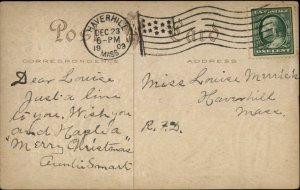 HAVERHILL
DEC 23
6-PM
1909
MASS.
Post Card
CORRESPONDENCE
ADDRESS
Dear Louise
Just a line
to you. Wish you
and Maple a
"Merry Christmas"
Auntie Smart
Miss Louise Merrick
Haverhill
Mass.
R.F.D.
ONE CENT